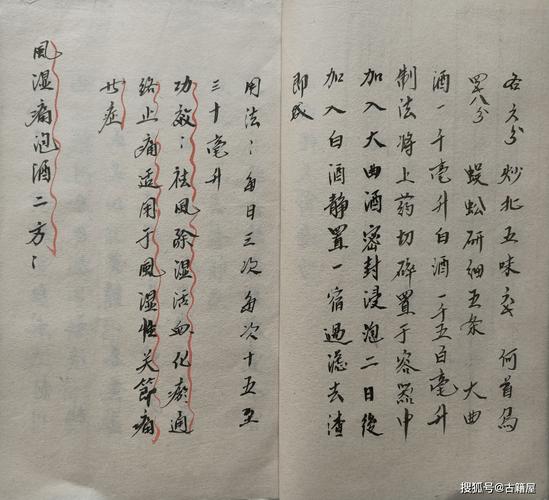 各六分 炒北五味 何首烏
八分 蜈蚣研細五条 大曲
酒一千毫升白酒一千五百毫升
制法将上药切碎置于容器中
加入大曲酒密封浸泡二日後
加入白酒静置一宿過滤去渣
即成
用法：每日三次每次十五至
三十毫升
功效：祛風除湿活血化瘀通
络止痛适用于風湿性关節痛
廿症
風湿痛泡酒二方：
搜狐号@古籍屋